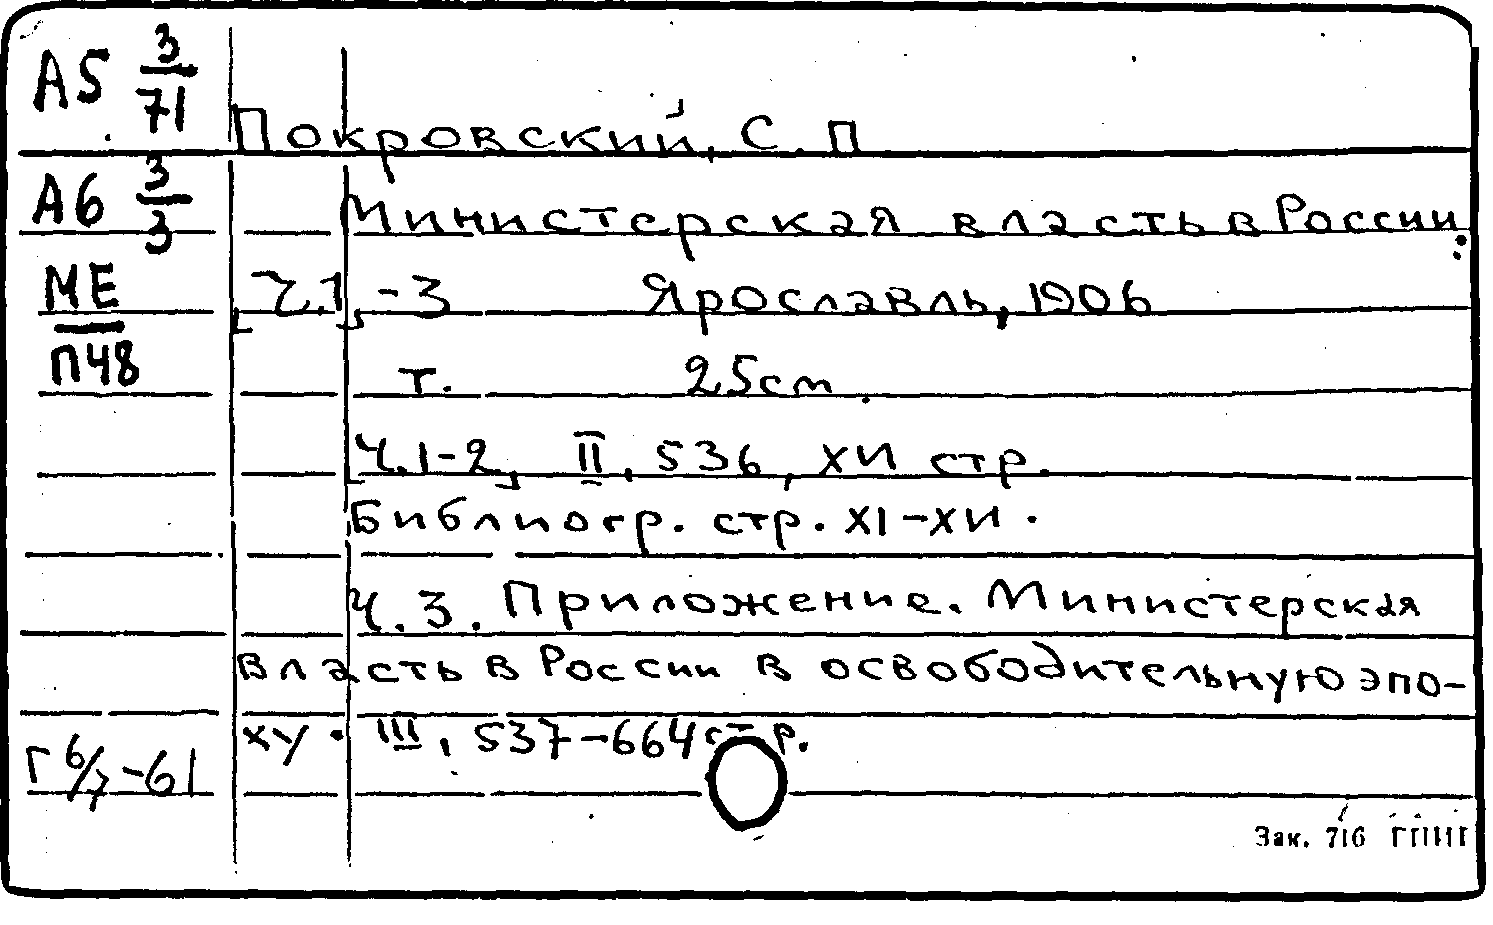 А5 3/71
Покровский, С. П
А6 3/3
Министерская власть в России.
МЕ
[Ч.1]-3 Ярославль, 1906
П48
т. 25см.
[Ч.1-2], II, 536, XИ стр.
Библиогр. стр. XI-XИ.
Ч.3. Приложение. Министерская
власть в России в освободительную эпо-
ху. III, 537-664 стр.
Г 6/7-61
Зак. 716